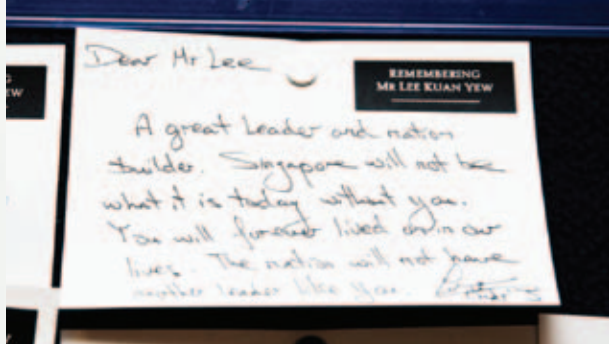 Dear Mr Lee
REMEMBERING
MR LEE KUAN YEW
A great Leader and nation
builder. Singapore will not be
what it is today without you.
You will forever lived on in our
lives. The nation will not have
another leader like you
EW